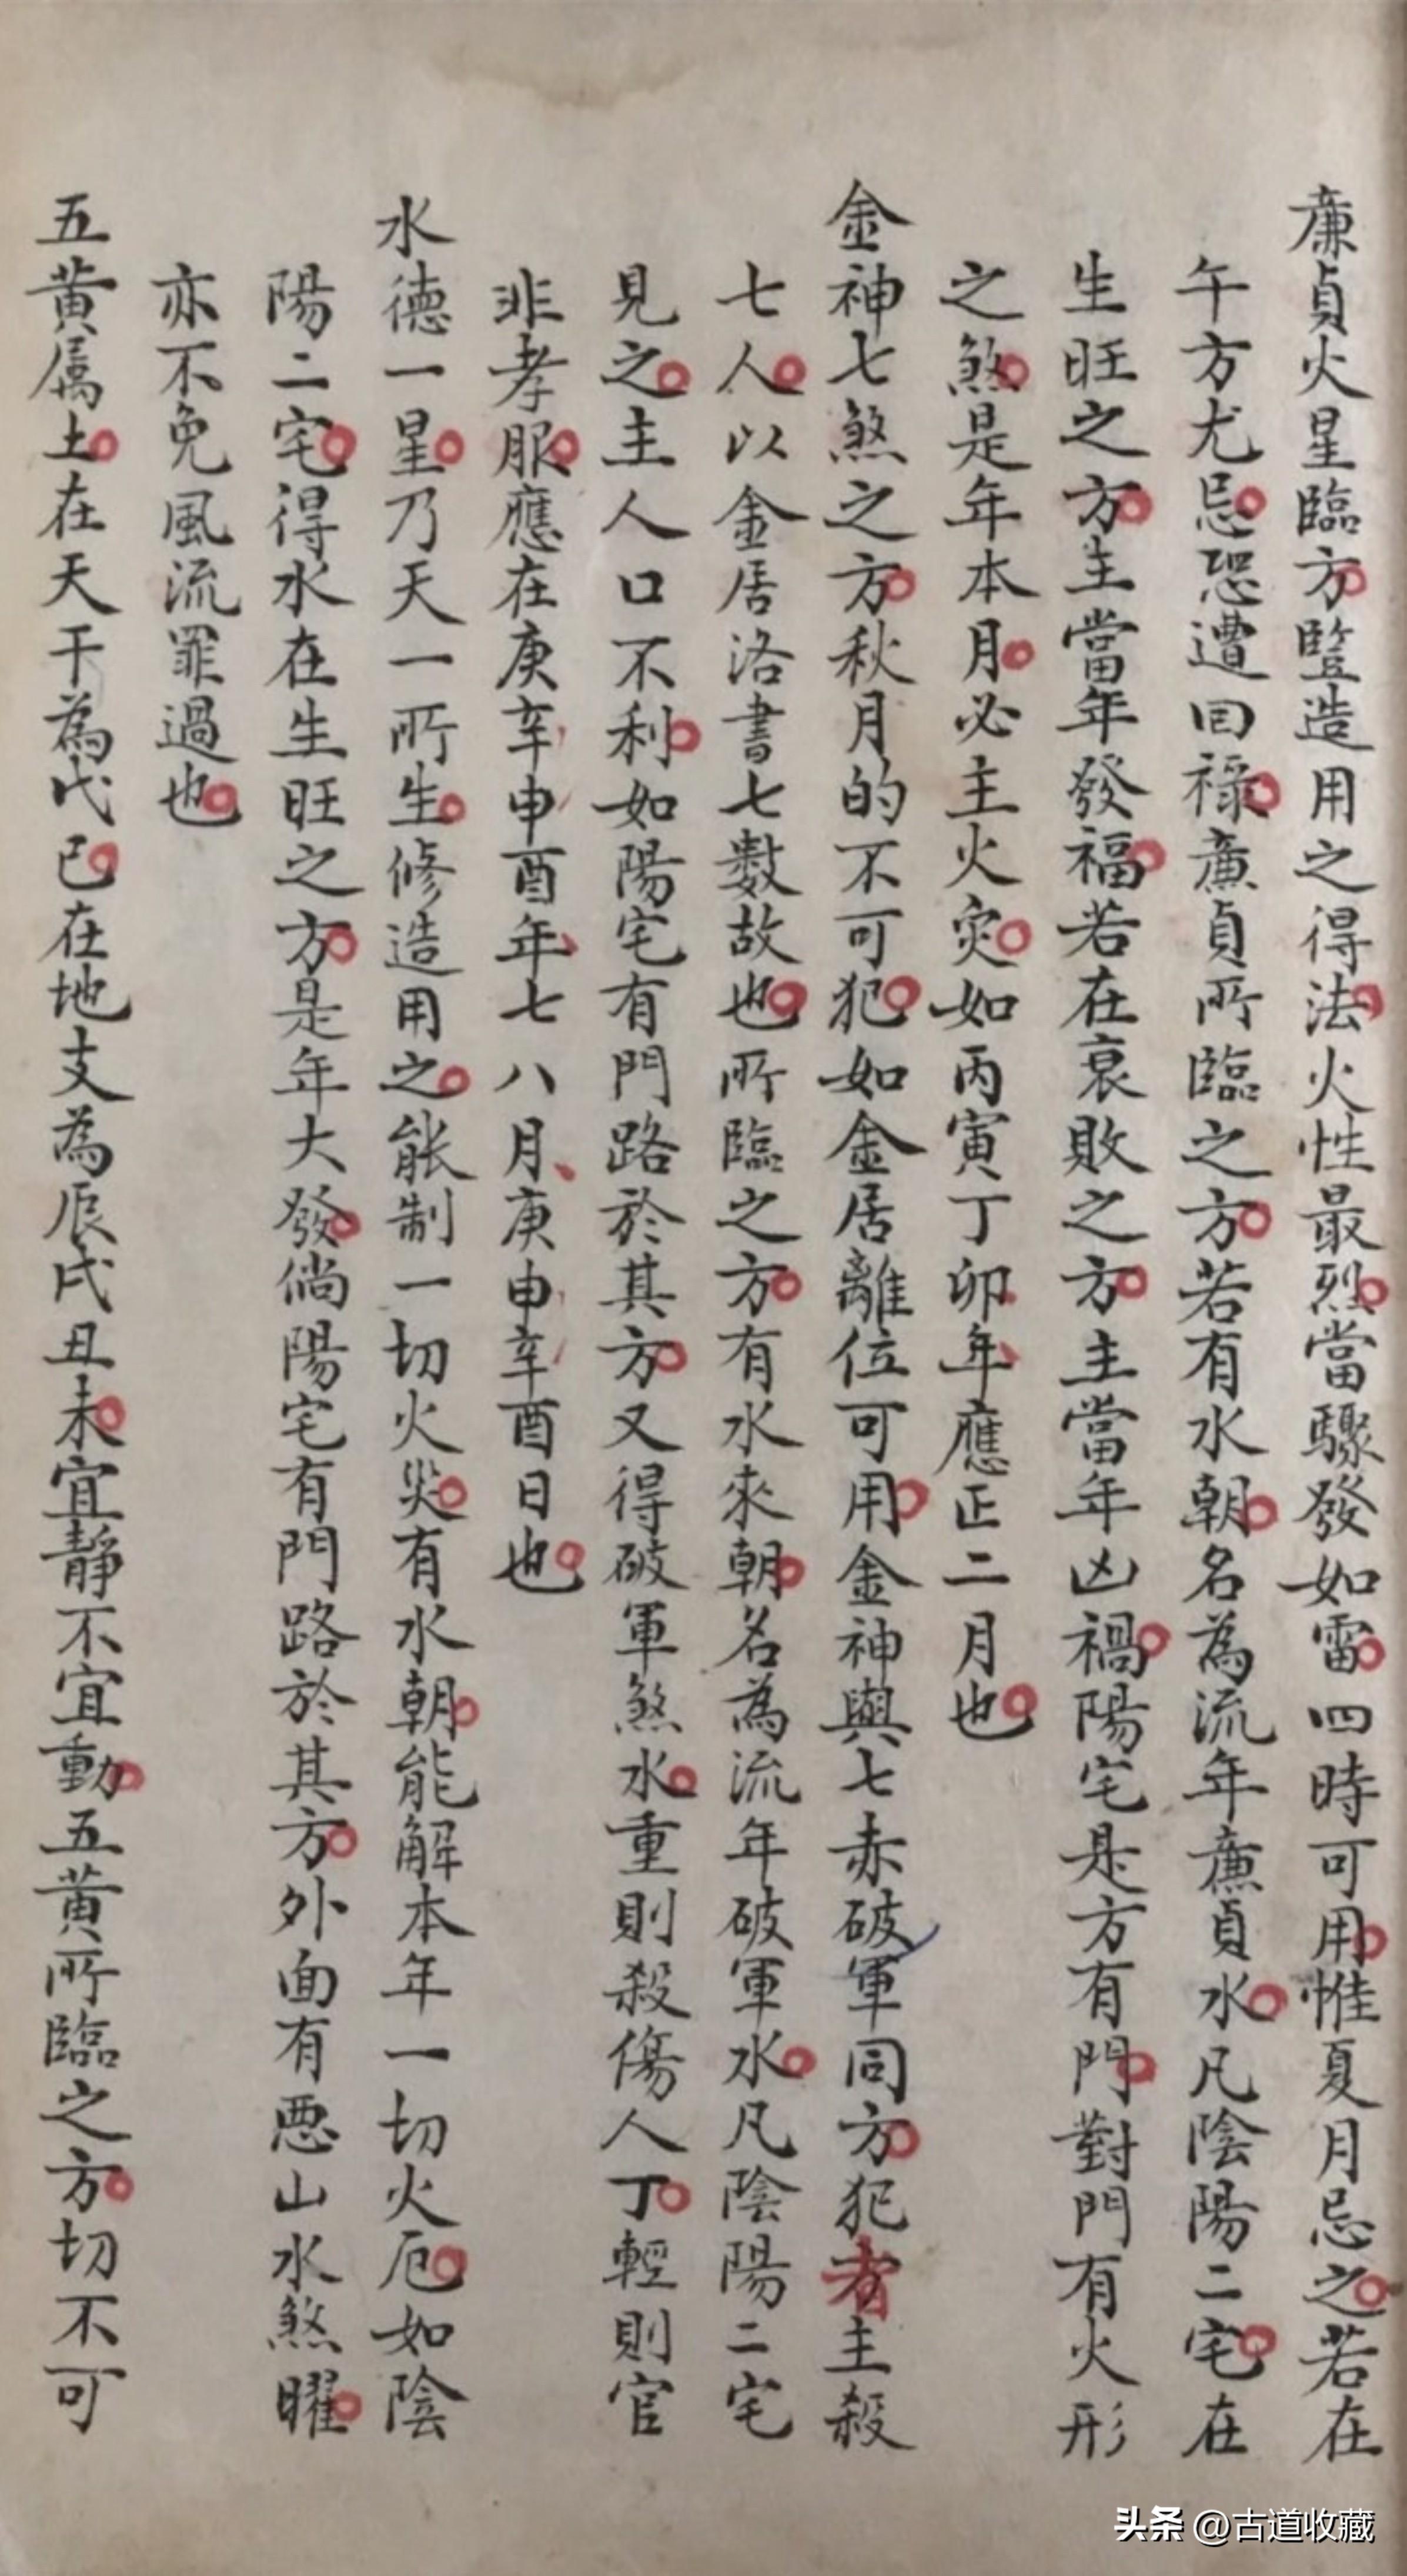 廉貞火星臨方竪造用之得法火性最烈當驟發如雷四時可用惟夏月忌之若在
午方尤忌恐遭回祿廉貞所臨之方若有水朝名為流年廉貞水凡陰陽二宅在
生旺之方主當年發福若在衰敗之方主當年凶禍陽宅是方有門對門有火形
之煞是年本月必主火灾如丙寅丁卯年應正二月也
金神七煞之方秋月的不可犯如金居離位可用金神與七赤破軍同方犯者主殺
七人以金居洛書七數故也所臨之方有水來朝名為流年破軍水凡陰陽二宅
見之主人口不利如陽宅有門路於其方又得破軍煞水重則殺傷人丁輕則官
非孝服應在庚辛申酉年七八月庚申辛酉日也
水德一星乃天一所生修造用之能制一切火災有水朝能解本年一切火厄如陰
陽二宅得水在生旺之方是年大發倘陽宅有門路於其方外面有惡山水煞曜
亦不免風流罪過也
五黃属土在天干為戊己在地支為辰戌丑未宜靜不宜動五黃所臨之方切不可
头条 @古道收藏